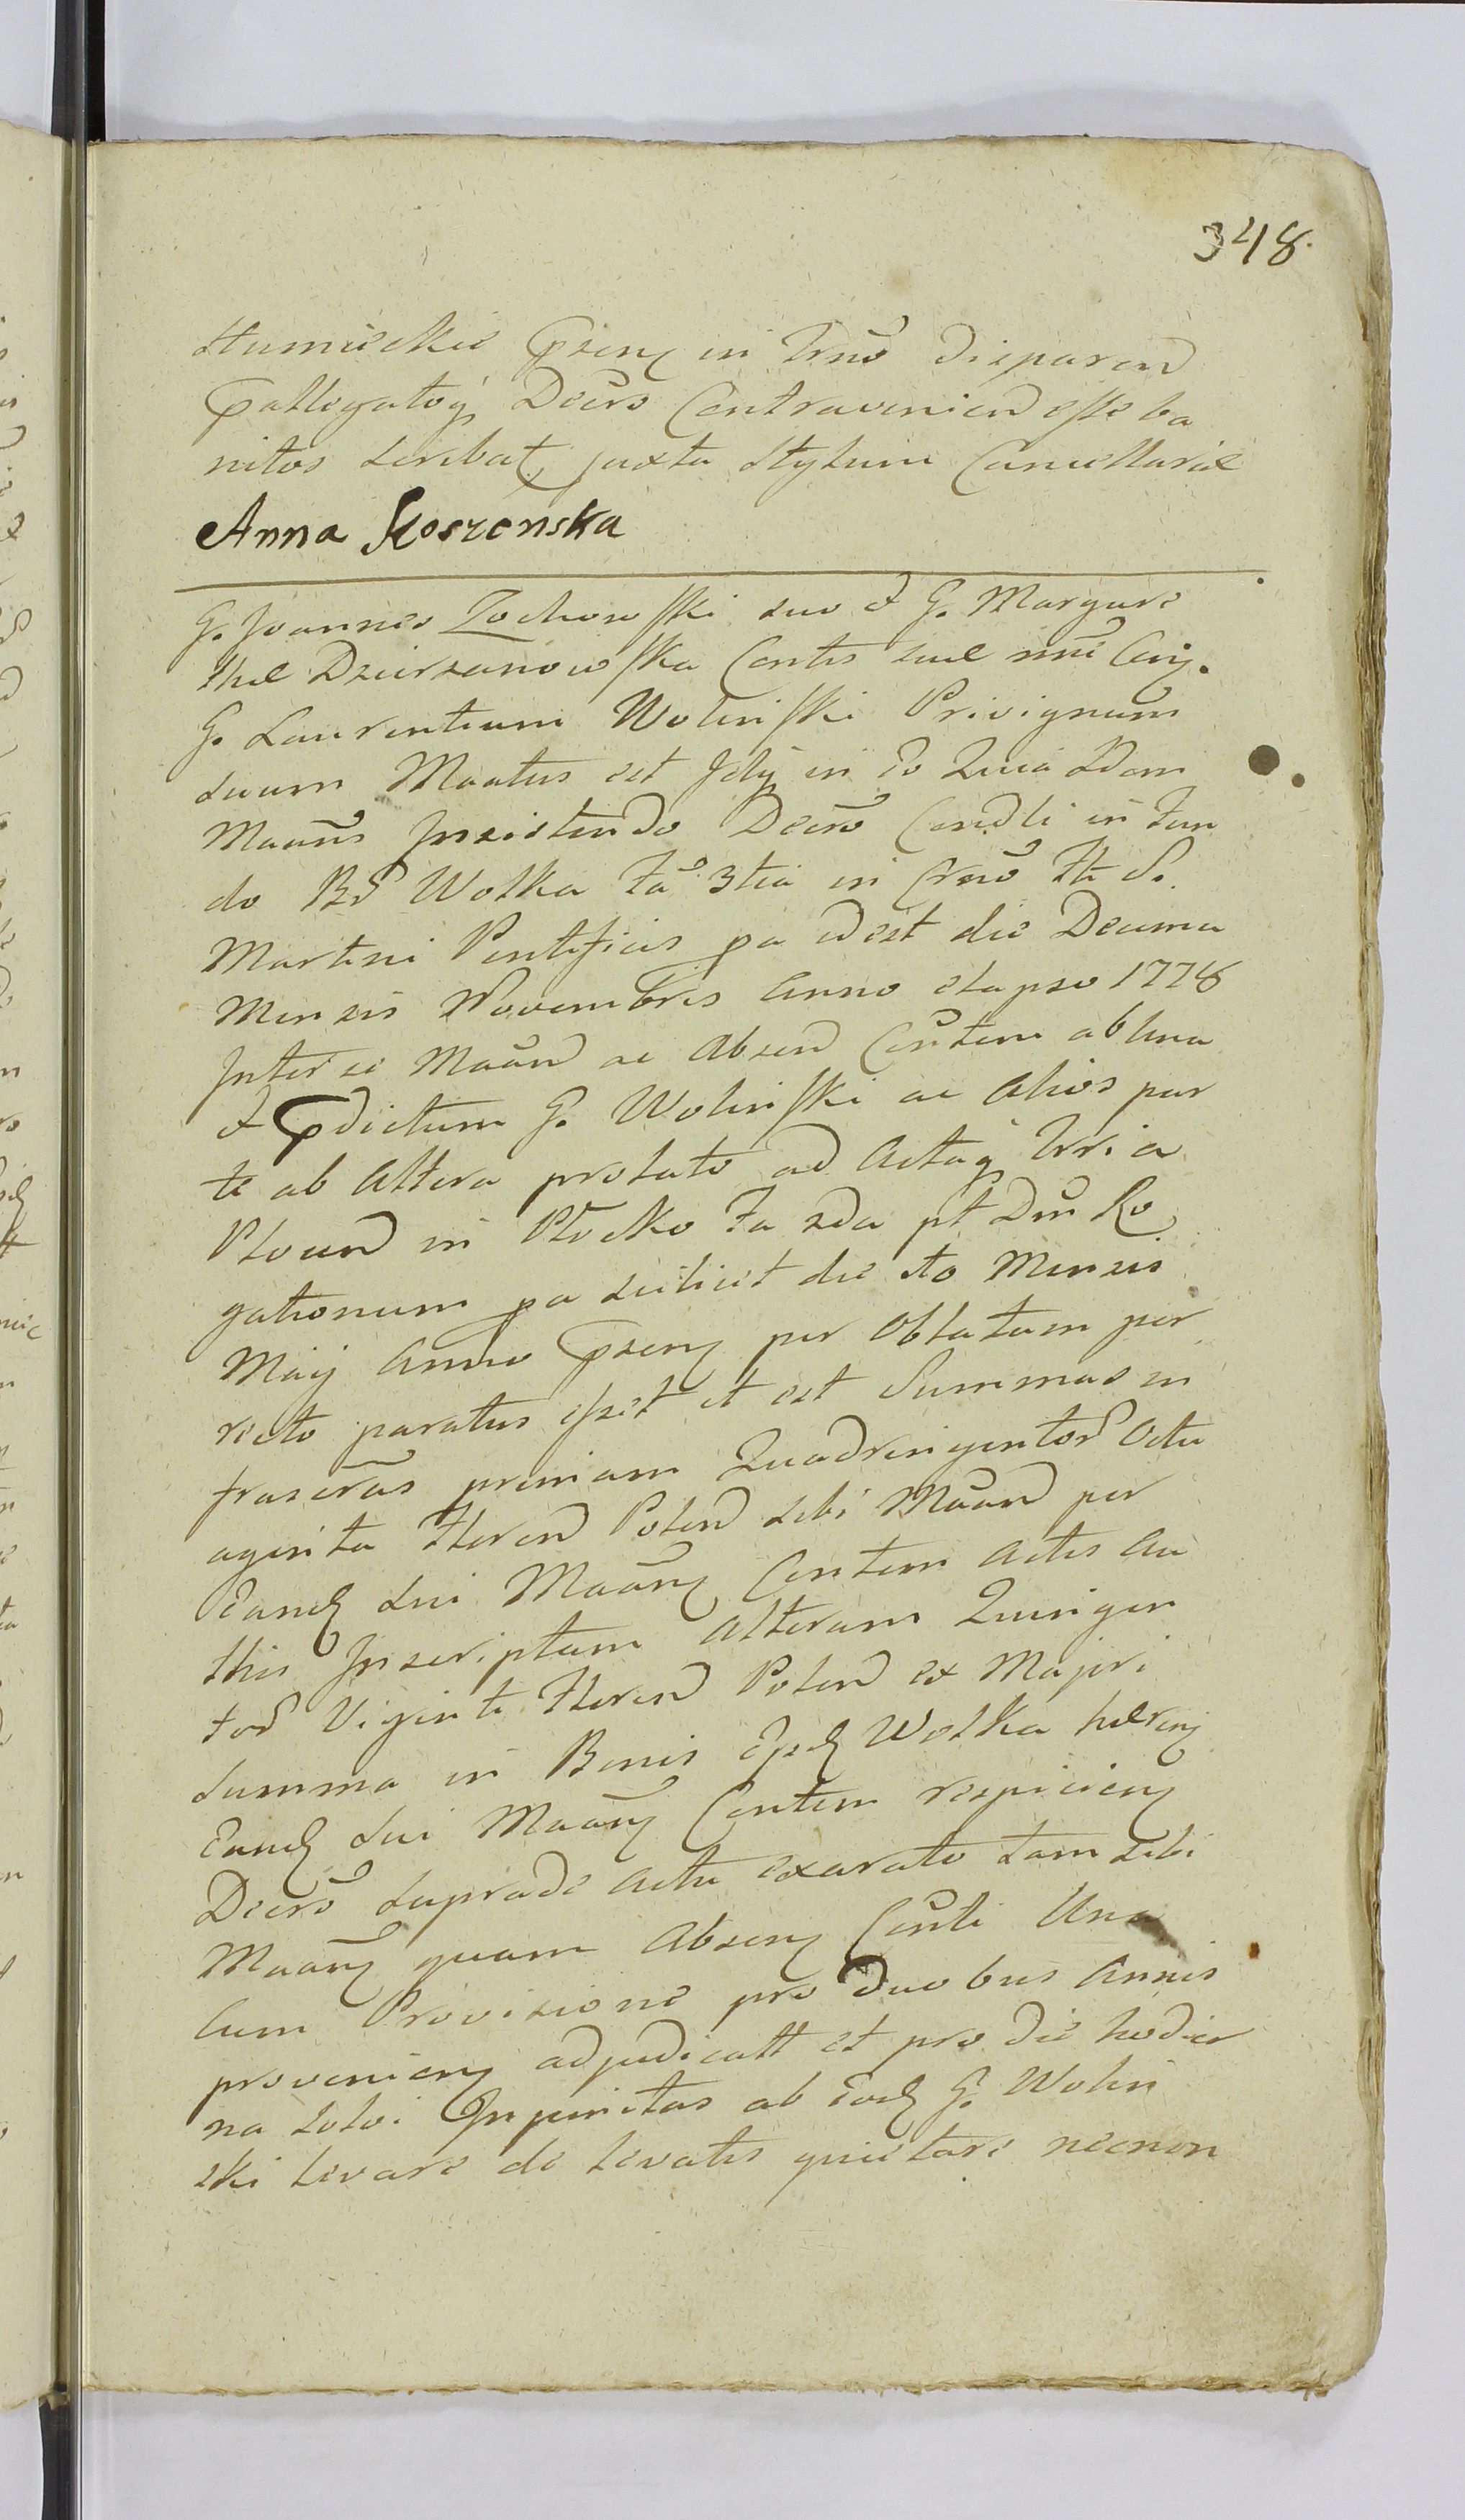 348.
Humieckie Pzenz in Trnō Disparend
Pallegatoq Decro Contravenien esse ba
nitos scribat, juxta Stylum Cancellariæ
Anna Koszenska
G. Joannes Zochowski suo & G. Margare
thæ Dzierzanowska Contis suæ nnē
G. Laurentium Wolinski Privignum
suum Maatus est in Eo Quia Idem
Maans Insistendo Decrō Condli in fun
do Bd Wolka fā 3tia in Crnō fti S.
Martini Pontificis pa idest die Decima
Mensis Novembris Anno elapso 1778
Inter se Maand ac Absen Contem ab una
& Pdictum G. Wolinski ac Alios par
te ab Altera prolato ad Actaq Trri a
Plocen in Plocko fa 2da pt Dm Ro
gationum pa scilicet die 10 Mensis
Maij Anno Pzenz per Oblatam por
recto paratus esset et est Summas in
frascras primam Quadringentor Octu
aginta floren Polon sibi Maand per
Eand sui Maanz Contem Actis Au
this Inscriptam Alteram Quingen
tor Viginti floren Polon ex Majori
summa in Bonis Epd Wolka hæren
Eand sui Maanz Contem respicienz
Decrō suprade Actu exarato tam sibi
Maanz quam Absenz Conti Una
Cum Provisione pro Duobus Annis
provenienz adjudicatt et pro die hodier
na Inpinitas ab Eod G. Wolin
ski levare de levatis quietare necnon